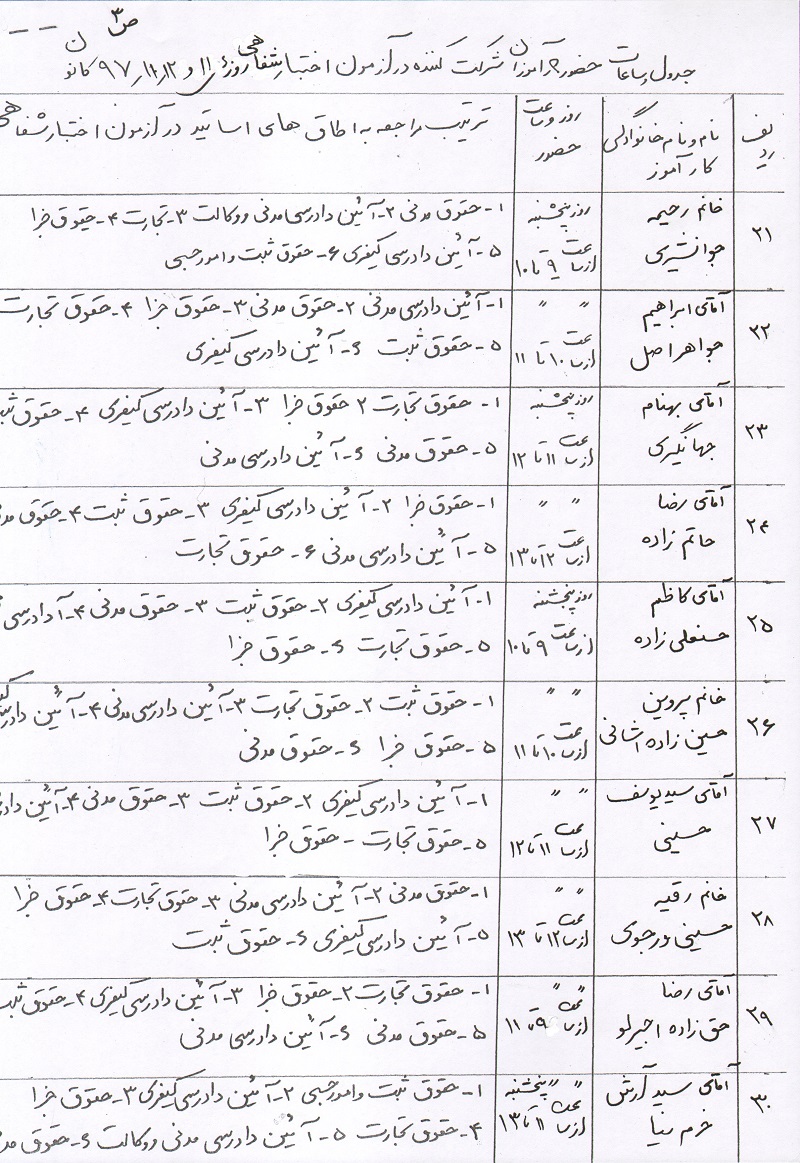 ص ۳
جدول ساعات حضور کارآموزان شرکت کننده در آزمون اختبار شفاهی روزهای ۱۱ و ۱۲ ،۱۱، ۹۷ کانون
ردیف نام و نام خانوادگی کارآموز روز و ساعت حضور ترتیب مراجعه به اطاق های اساتید در آزمون اختبار شفاهی
۲۱ خانم رحیمه روز پنجشنبه ۱- حقوق مدنی ۲- آئین دادرسی مدنی و وکالت ۳- تجارت ۴- حقوق جزا
جوانشیری از ساعت ۹ تا ۱۰ ۵- آئین دادرسی کیفری ۶- حقوق ثبت و امور حسبی
۲۲ آقای ابراهیم " " ۱- آئین دادرسی مدنی ۲- حقوق مدنی ۳- حقوق جزا ۴- حقوق تجارت
جواهر اصل از ساعت ۱۰ تا ۱۱ ۵- حقوق ثبت ۶- آئین دادرسی کیفری
۲۳ آقای بهنام روز پنجشنبه ۱- حقوق تجارت ۲ حقوق جزا ۳- آئین دادرسی کیفری ۴- حقوق
جهانگیری از ساعت ۱۱ تا ۱۲ ۵- حقوق مدنی ۶- آئین دادرسی مدنی
۲۴ آقای رضا " " ۱- حقوق جزا ۲- آئین دادرسی کیفری ۳- حقوق ثبت ۴- حقوق
حاتم زاده از ساعت ۱۲ تا ۱۳ ۵- آئین دادرسی مدنی ۶- حقوق تجارت
۲۵ آقای کاظم روز پنجشنبه ۱- آئین دادرسی کیفری ۲- حقوق ثبت ۳- حقوق مدنی ۴- آ دادرسی
حسنعلی زاده از ساعت ۹ تا ۱۰ ۵- حقوق تجارت ۶- حقوق جزا
۲۶ خانم پروین " " ۱- حقوق ثبت ۲- حقوق تجارت ۳- آئین دادرسی مدنی ۴- آئین
حسین زاده اشانی از ساعت ۱۰ تا ۱۱ ۵- حقوق جزا ۶- حقوق مدنی
۲۷ آقای سید یوسف " " ۱- آئین دادرسی کیفری ۲- حقوق ثبت ۳- حقوق مدنی ۴- آئین
حسینی از ساعت ۱۱ تا ۱۲ ۵- حقوق تجارت - حقوق جزا
۲۸ خانم رقیه " " ۱- حقوق مدنی ۲- آئین دادرسی مدنی ۳- حقوق تجارت ۴- حقوق جزا
حسینی ورجوی از ساعت ۱۲ تا ۱۳ ۵- آئین دادرسی کیفری ۶- حقوق ثبت
۲۹ آقای رضا " " ۱- حقوق تجارت ۲- حقوق جزا ۳- آئین دادرسی کیفری ۴- حقوق
حق زاده اجیرلو از ساعت ۹ تا ۱۱ ۵- حقوق مدنی ۶- آئین دادرسی مدنی
۳۰ آقای سید آرش " " پنجشنبه ۱- حقوق ثبت و امور حسبی ۲- آئین دادرسی کیفری ۳- حقوق جزا
خرم نیا از ساعت ۱۱ تا ۱۳ ۴- حقوق تجارت ۵- آئین دادرسی مدنی و وکالت ۶- حقوق